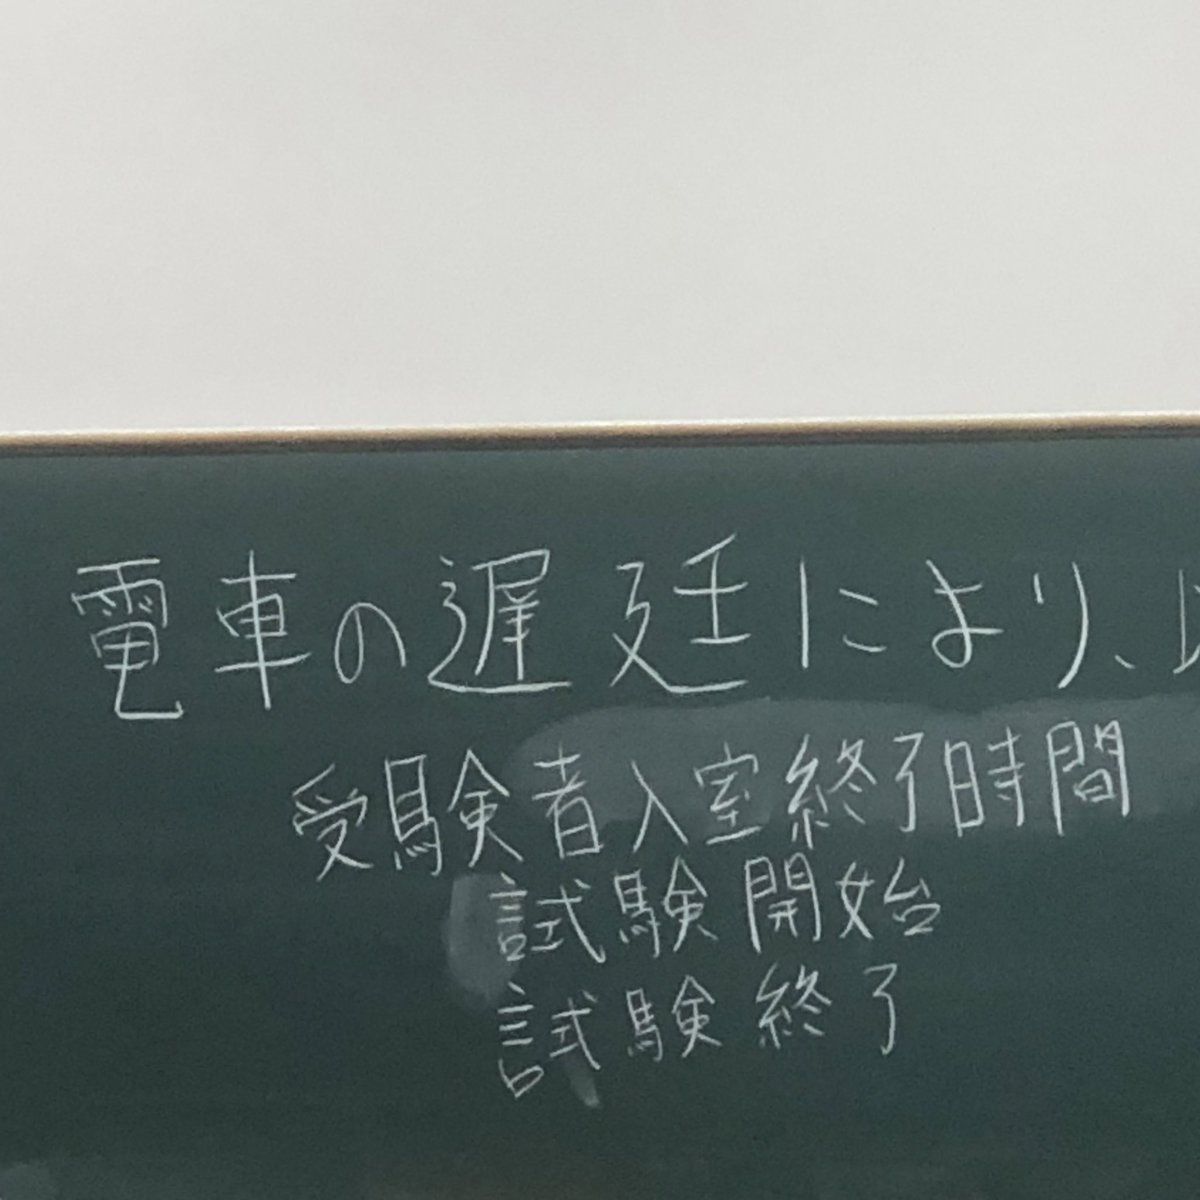 電車の遅廷により、
受験者入室終了時間
試験開始
試験終了